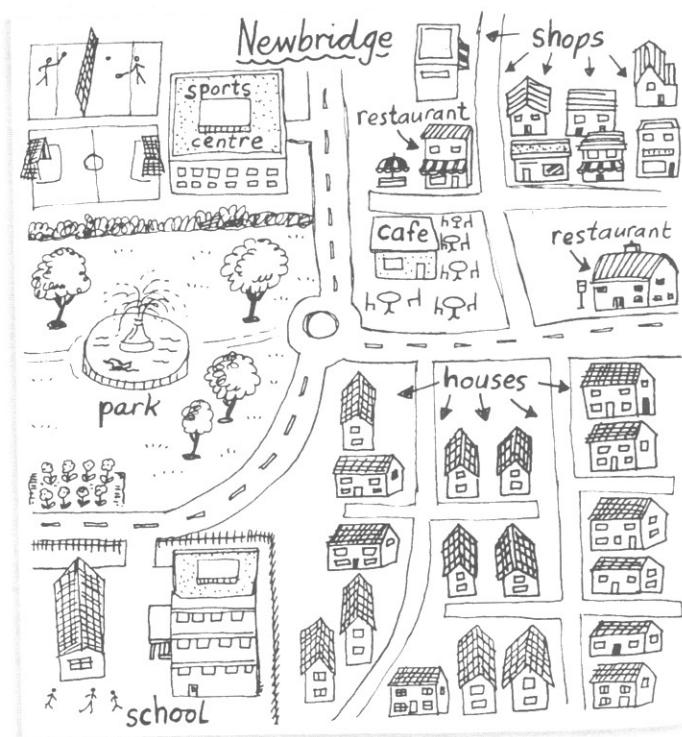 Newbridge
shops
sports
centre
restaurant
cafe
restaurant
houses
park
school